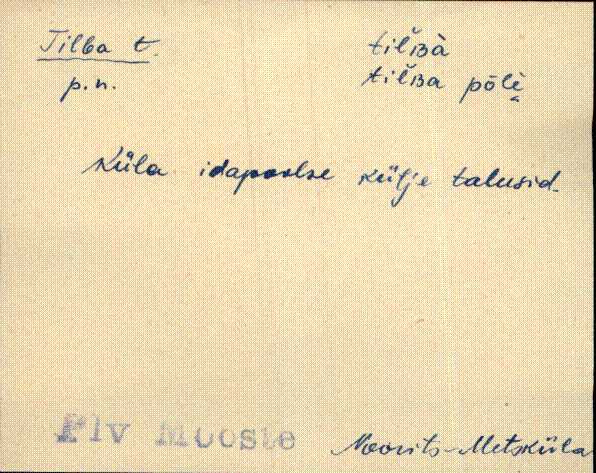 Tilba t.
tilˇʙà
p.n.
tilˇʙa põlè̬
Küla idapoolse külje talusid.
Plv Mooste
Noorits-Metsküla